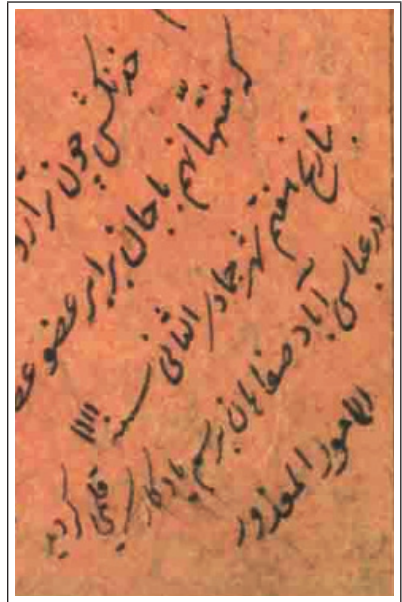 خدنگش چون
که منتها نهم با جان برابر عضو
بتاریخ هفتم شهر جمادی الثانی سنه ۱۱۱۱
در عباس آباد صفاهان برسم یادکار قلمی کردید
المامور المعذور